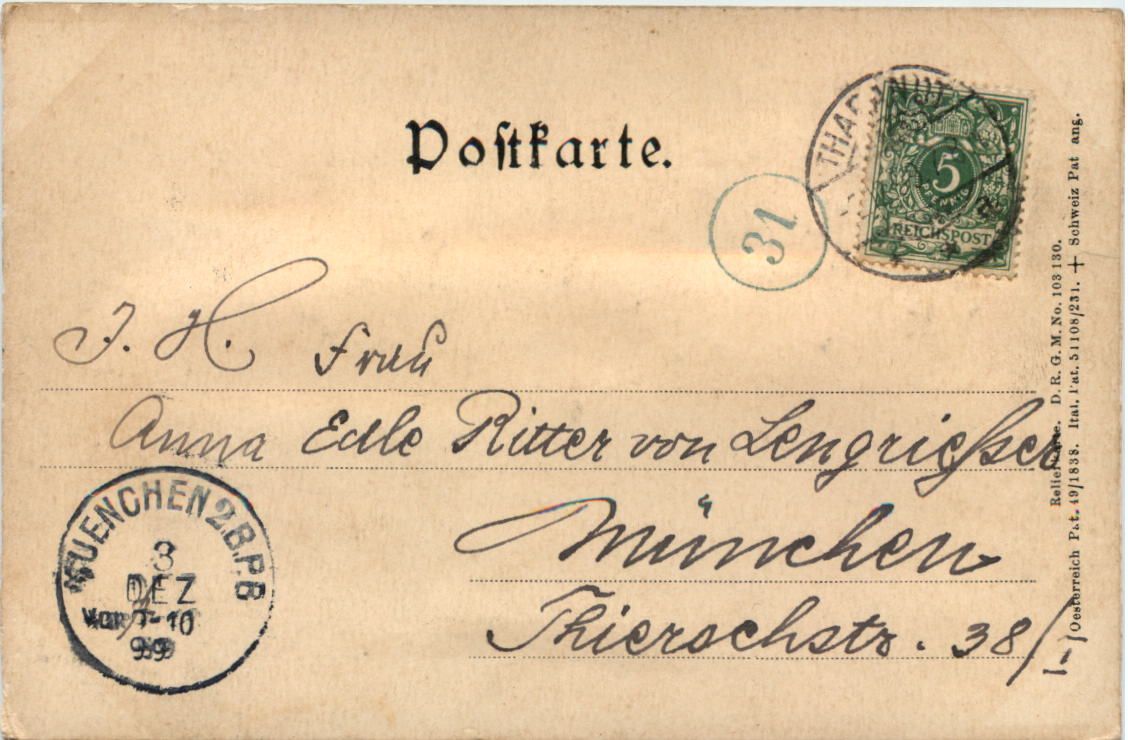 Postkarte.
THARANDT
5
PFENNIG
REICHSPOST
31
J. H. Frau
Anna Edle Ritter von Lengrießer
München
Thierschstr. 38/I.
MUENCHEN 2.B.P.B
3
DEZ
VOR 9-10
99
Reliefkarte. D. R. G. M. No. 103130.
Oesterreich Pat. 49/1838. Ital. Pat. 51108/231. + Schweiz Pat ang.